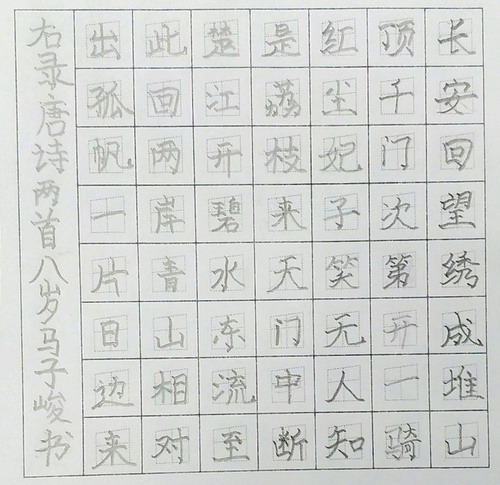 长安回望绣成堆山
顶千门次第开一骑
红尘妃子笑无人知
是荔枝来天门中断
楚江开碧水东流至
此回两岸青山相对
出孤帆一片日边来
右录唐诗两首八岁马子峻书